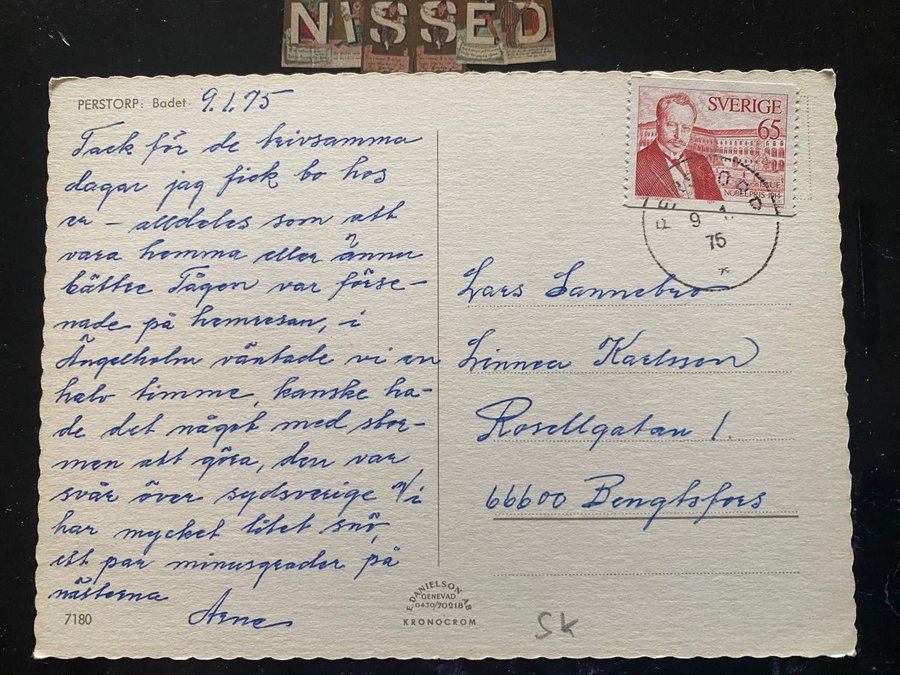 NISSED
PERSTORP: Badet 9.1.75
Tack för de trivsamma
dagar jag fick bo hos
er – alldeles som att
vara hemma eller ännu
bättre Tågen var förse-
nade på hemresan, i
Ängelholm väntade vi en
halv timme, kanske ha-
de det något med stor-
men att göra, den var
svår över sydsverige Vi
har mycket litet snö,
ett par minusgrader på
nätterna
Arne
7180
E. DANIELSON AB
GENEVAD
0430/70218
KRONOCROM
SVERIGE
65
NOBELPRIS 1914
PERSTORP
9 1
75
Lars Sannebro
Linnea Karlsson
Rosellgatan 1.
66600 Bengtsfors
SK